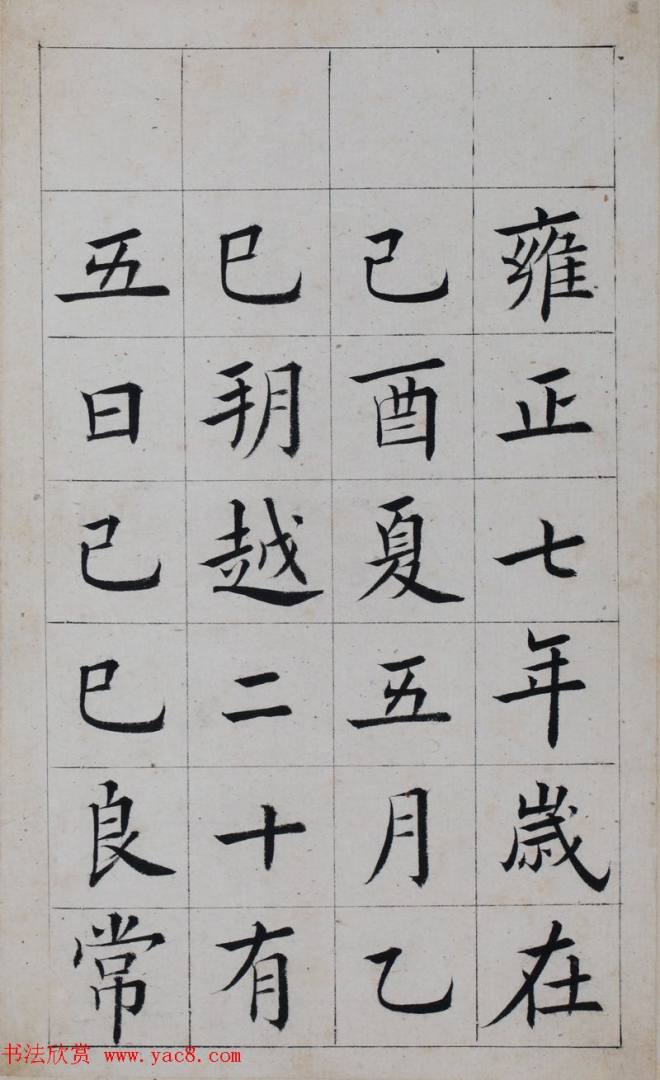 雍正七年歳在
己酉夏五月乙
巳朔越二十有
五日己巳良常
书法欣赏 www.yac8.com